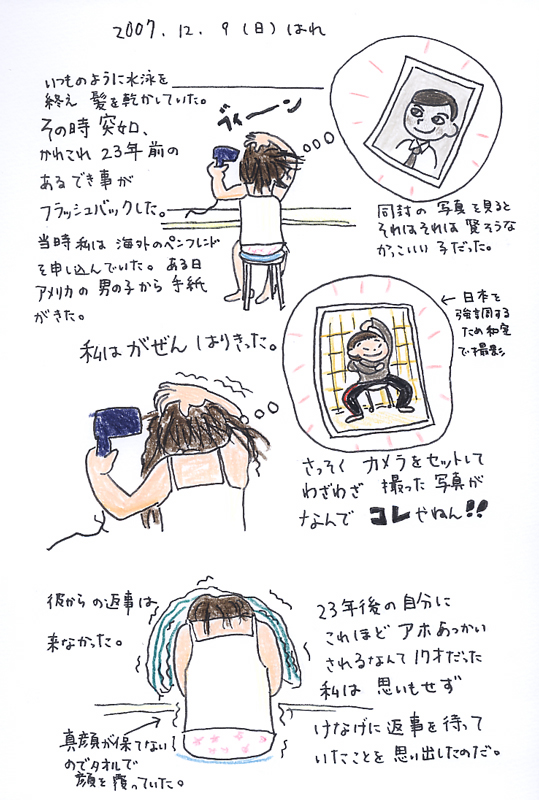 2007. 12. 9 (日) はれ
いつものように水泳を
終え 髪を乾かしていた。
その時 突如、
かれこれ 23年前の
あるでき事が
フラッシュバックした。
ブィーン
当時 私は 海外のペンフレンド
を申し込んでいた。ある日
アメリカの 男の子から 手紙
がきた。
同封の 写真を見ると
それはそれは 賢そうな
かっこいい 子だった。
私は がぜん はりきった。
← 日本を
強調する
ため和室
で撮影
さっそく カメラをセットして
わざわざ 撮った 写真が
なんで コレやねん!!
彼からの返事は
来なかった。
真顔が保てない
のでタオルで
顔を覆っていた。
23年後の自分に
これほど アホあつかい
されるなんて 17才だった
私は 思いもせず
けなげに 返事を 待って
いたことを 思い出したのだ。